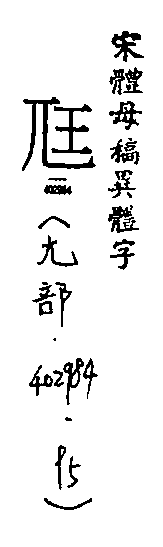 宋體母稿異體字
尩
402984
(尢部.402984.)